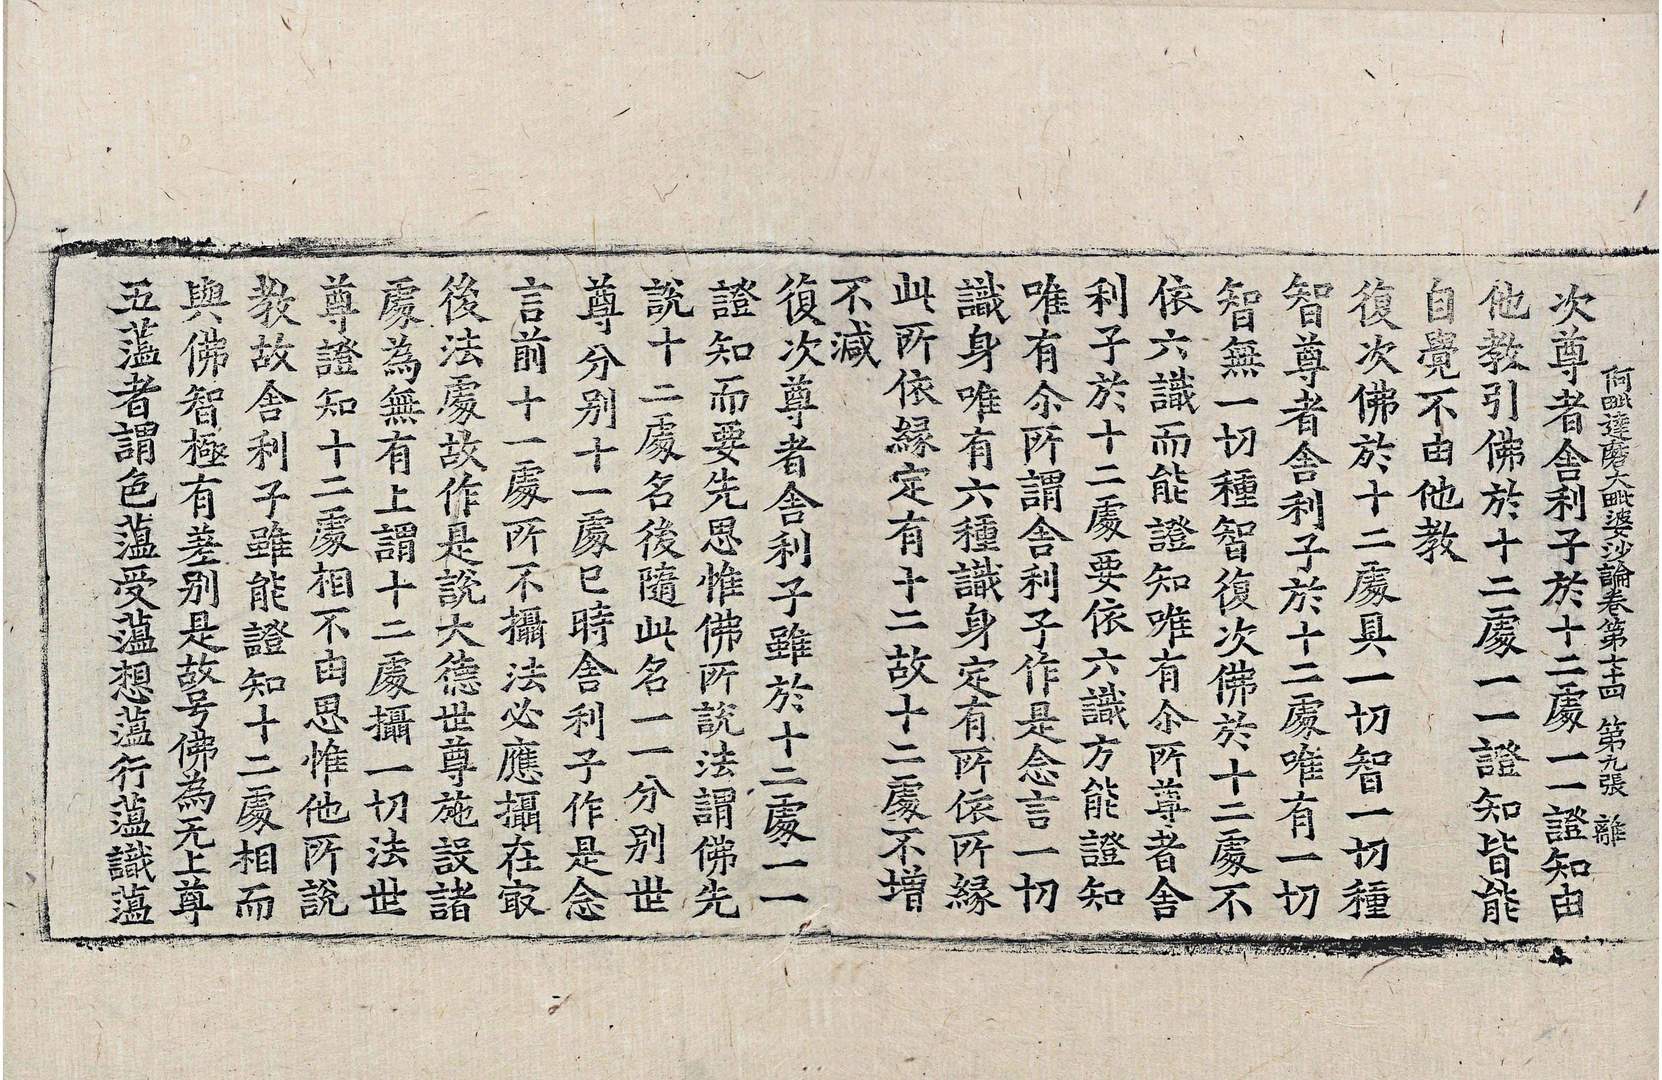 阿毗達磨大毗婆沙論卷第七十四 第九張 離
次尊者舍利子於十二處一一證知由
他教引佛於十二處一一證知皆能
自覺不由他教
復次佛於十二處具一切智一切種
智尊者舍利子於十二處唯有一切
智無一切種智復次佛於十二處不
依六識而能證知唯有尒所尊者舍
利子於十二處要依六識方能證知
唯有尒所謂舍利子作是念言一切
識身唯有六種識身定有所依所緣
此所依緣定有十二故十二處不增
不減
復次尊者舍利子雖於十二處一一
證知而要先思惟佛所說法謂佛先
說十二處名後隨此名一一分別世
尊分別十一處已時舍利子作是念
言前十一處所不攝法必應攝在㝡
後法處故作是說大德世尊施設諸
處為無有上謂十二處攝一切法世
尊證知十二處相不由思惟他所說
教故舍利子雖能證知十二處相而
與佛智極有差別是故号佛為无上尊
五薀者謂色薀受薀想薀行薀識薀